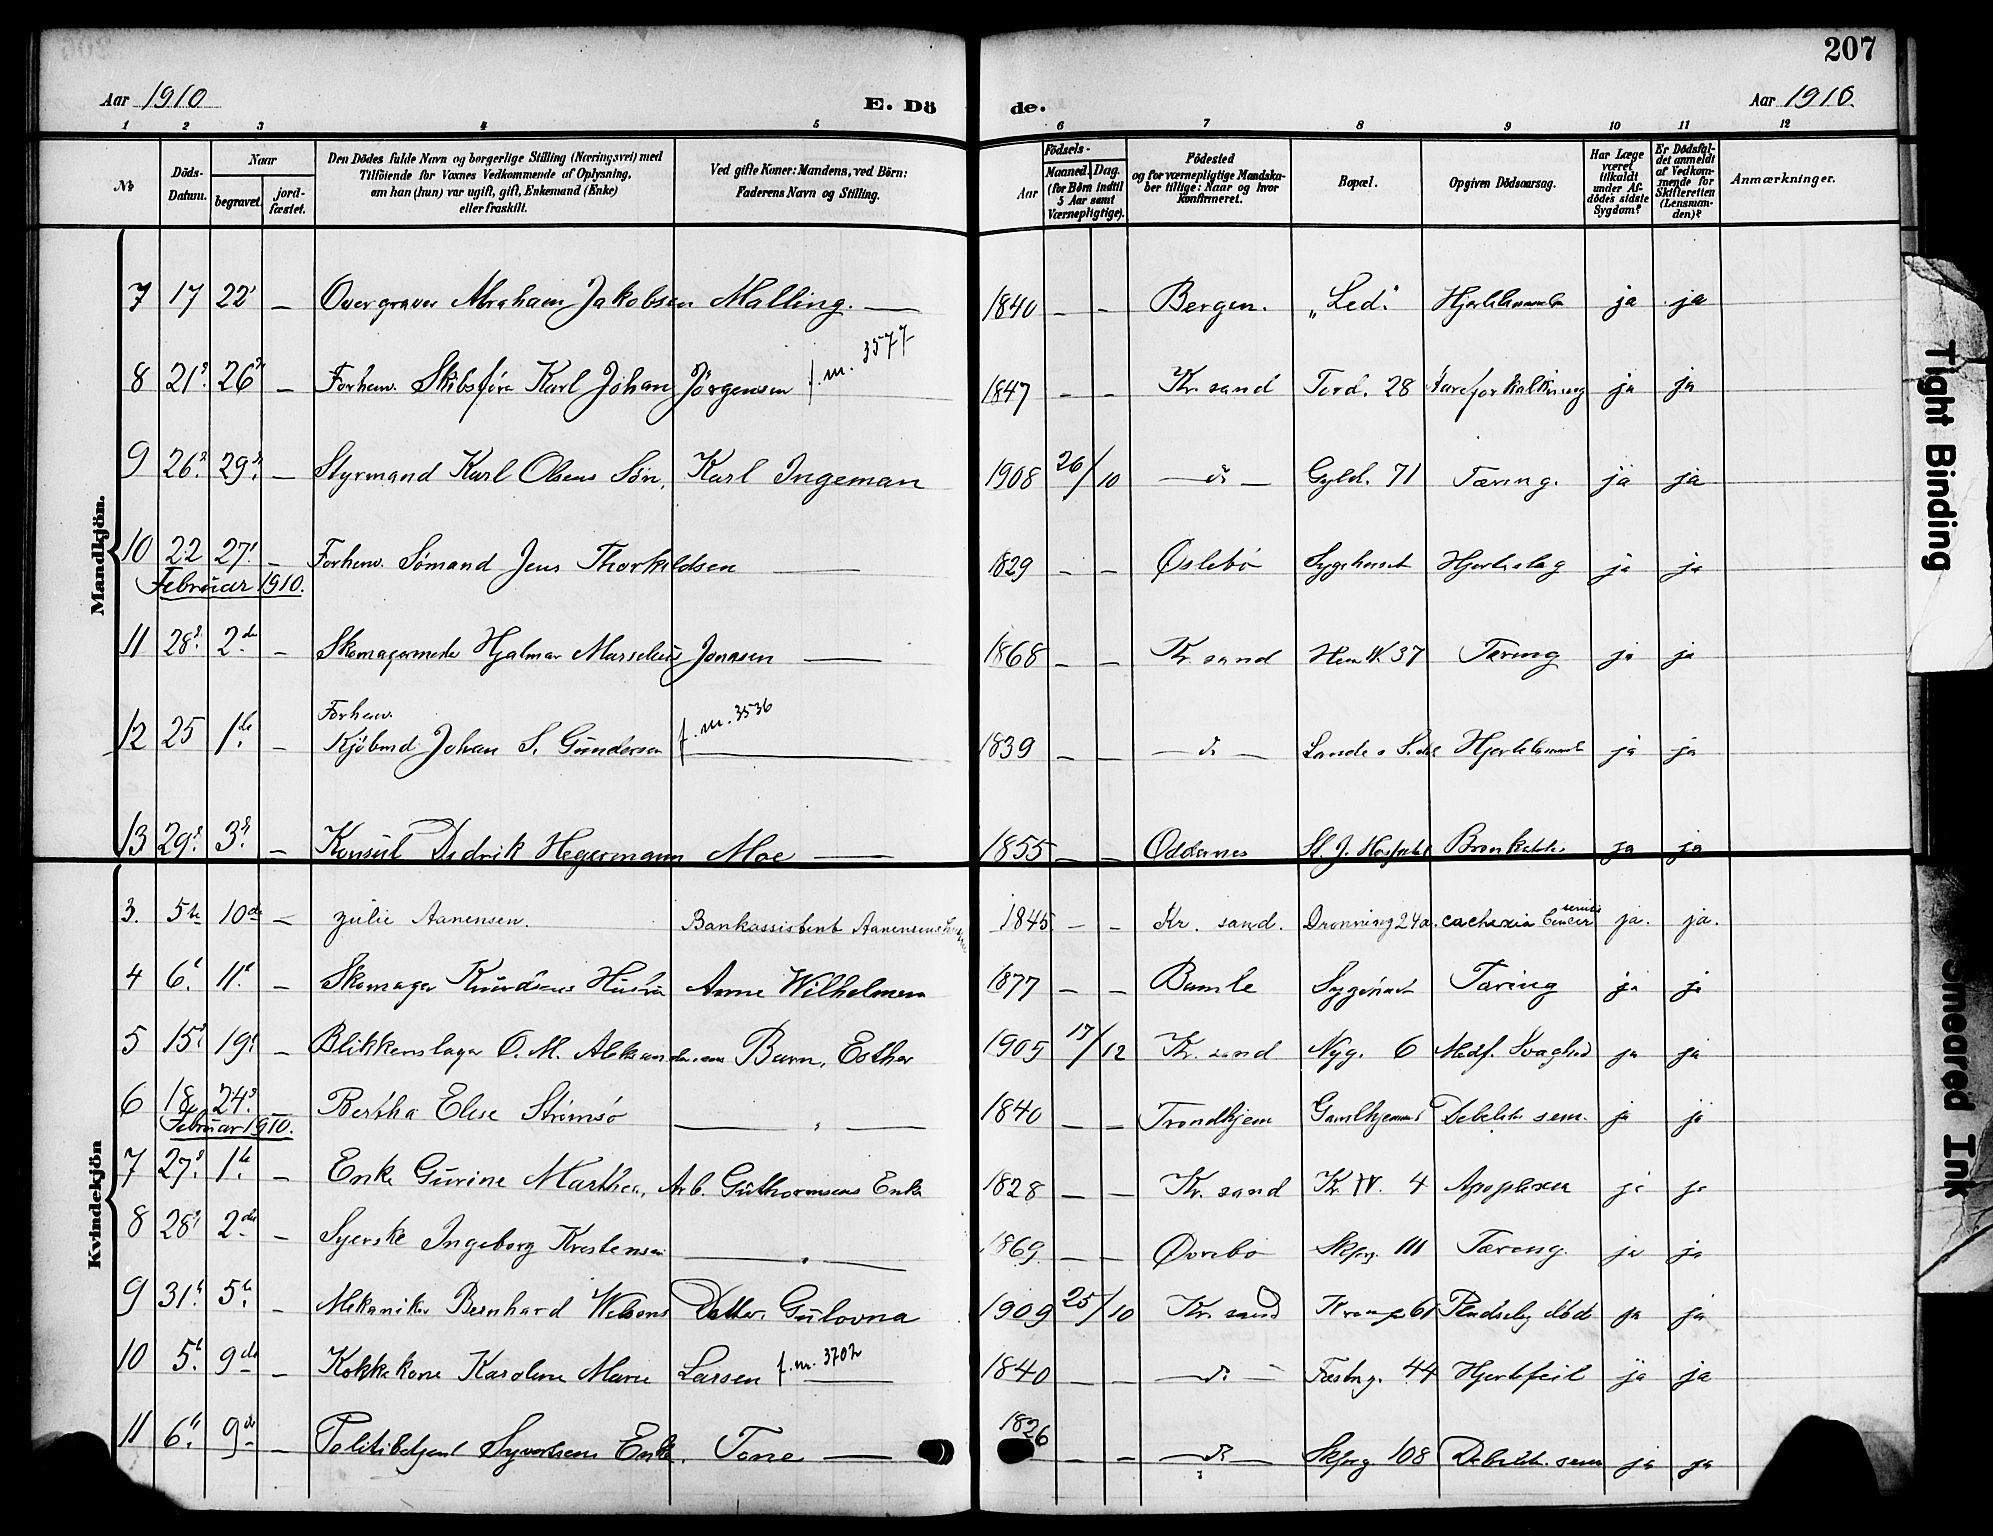 207
Aar 1910 E. Dö de. Aar 1910.
1 2 3 4 5 6 7 8 9 10 11 12
№
Döds-
Datum.
Naar
begravet.
jord-
fæstet.
Den Dödes fulde Navn og borgerlige Stilling (Næringsvei) med
Tilföiende for Voxnes Vedkommende af Oplysning,
om han (hun) var ugift, gift, Enkemand (Enke)
eller fraskilt.
Ved gifte Koner: Mandens, ved Börn:
Faderens Navn og Stilling.
Födsels-
Aar
Maaned. Dag.
(for Börn indtil
5 Aar samt
Værnepligtige).
Födested
og for værnepligtige Mandska-
ber tillige: Naar og hvor
konfirmeret.
Bopæl.
Opgiven Dödsaarsag.
Har Læge
været
tilkaldt
under Af-
dödes sidste
Sygdom?
Er Dödsfal-
det anmeldt
af Vedkom-
mende for
Skifteretten
(Lensman-
den)?
Anmærkninger.
Mandkjön.
7 17 22 — Overgraver Abraham Jakobsen Malling. — 1840 — — Bergen. "Led." ja ja
8 21 26 — Forhenv. Skibsfører Karl Johan Jörgensen f. m. 3577 1847 — — Kr. sand Tord. 28 Aareforkalkning ja ja
9 26 29 — Styrmand Karl Olsens Søn, Karl Ingeman 1908 26/10 — do — Gyld. 71 Tæring. ja ja
10 22 27 — Forhenv. Sømand Jens Thorkildsen — 1829 — — Øslebö Sygehuset Hjerteslag ja ja
Februar 1910.
11 28 2de — Skomagermester Hjalmar Marselius Jonasen — 1868 — — Kr. sand Hen W. 37 Tæring ja ja
Forhenv.
12 25 1ste — Kjöbmd Johan S. Gundersen f. m. 3536 — 1839 — — — do — ja ja
13 29 3 — Konsul Didrik Hegermann Moe — 1855 — — Oddernes St. J. Hospital ja ja
Kvindekjön
3. 5te 10de — Julie Aanensen. Bankassistent Aanensens 1845 — — Kr. sand. Dronning 24a. cachexia senilis Cancer ja. ja.
4 6 11 — Skomager Knudsens Hustru Anne Wilhelmine 1877 — — Bamle Sygehuset Tæring ja ja
5 15 19 — Blikkenslager O. M. Aleksandersens Barn, Esther 1905 17/12 Kr. sand Nyg. 6 Medf. Svaghed ja ja
6 18 24 — Bertha Elise Strömsö — " — 1840 — — Trondhjem Gamlehjemmet Debilitas sen. ja ja
Februar 1910.
7 27 1ste — Enke Gurine Marthea, Arb. Guthormsens Enke 1828 — — Kr. sand Kr. IV. 4 Apoplexia ja ja
8 28 2den — Syerske Ingeborg Kristensen — " — 1869 — — Øvrebö Skipg. 111 Tæring. ja ja
9 31 5te — Mekaniker Bernhard Nelsons Datter, Gulovna 1909 25/10 Kr. sand 61 Pludselig död ja ja
10 5te 9de — Kokkekone Karoline Marie Larsen f. m. 3702 — 1840 — — — do — Fæstng. 44 Hjertefeil ja ja
11 6te 9de — Politibetjent Syvertsens Enke, Tone — 1826 — — — do — Skipg 108 Debilit. sen ja ja
Tight Binding
Smeared Ink